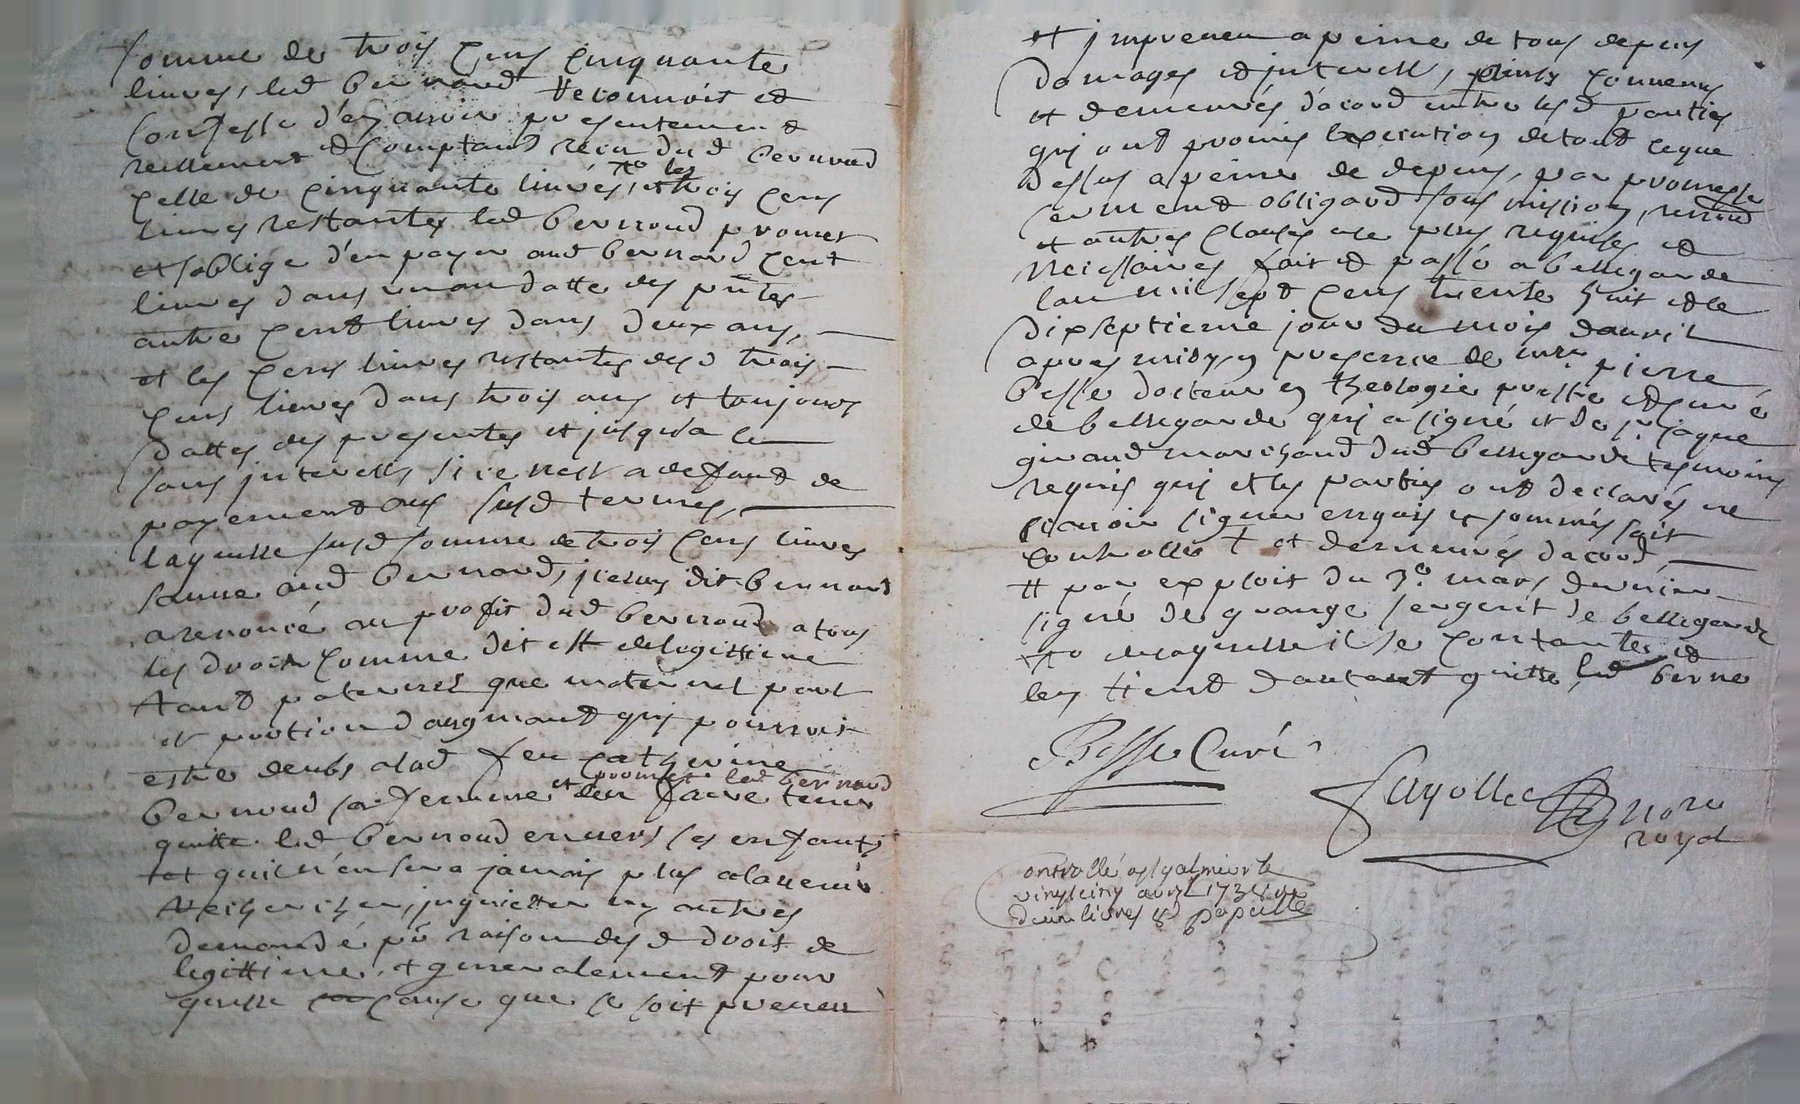 somme de trois cens cinquante
livres, led bernard reconnoit et
confesse d'en avoir presentement
reellement et comptant receu dud bernoud
celle de cinquante livres, # et les trois cens
livres restantes led bernoud promet
et soblige d'en payer aud bernard cent
livres dans un an datte des pntes
autre cent livres dans deux ans,
et les cens livres restantes desd trois
cens livres dans trois ans et toujours
dattes des presentes et jusqu'a ce
sans interests, si ce nest a defaut de
payement aus susd termes,
laquelle susd somme de trois cens livres
sauve aud bernard, icelluy dit bernard
a renoncé au profit dud bernoud a tous
les droits comme dit est de legittime
tant paternel que maternel part
et portion d'augmant qui pourroit
estre deubs a lad feu catherine
bernoud sa femme et promet led bernard den faire tenir
quitte led bernoud envers ses enfants
et quil n'en sera jamais plus a lavenir
rechercher, inquietter ny autres
demandé pr raison desd droit de
legittime, et generalement pour
quelle cause que ce soit preveu
et impreveu a peine de tous depens
domages et interest, ainsy convenus
et demeurés d'acord entre lesd parties
qui ont promis lexecution de tout ce que
dessus a peine de depens, par promesse
serment obligaod sousmission, renond
et autres clauses a ce plus requises et
necessaires fait et passé a bellegarde
lan mil sept cens trente huit et le
dixseptieme jour du mois davril
apres midy en presence de mre pierre
besse docteur en theologie prestre et curé
de bellegarde qui a signé et de sr jaque
giraud marchand dud bellegarde tesmoins
requis qui et les parties ont declarés ne
scavoir signer enquis et sommés soit
controllé † et demeurés dacord
# par exploit du 3e mars dernier
signé de grange sergent de bellegarde
# de laquelle il se contante et
len tient dautant quitte led berno
Besse Curé
Fayolle nore
royal
Controllé a st galmier le
vingt cinq avril 1738